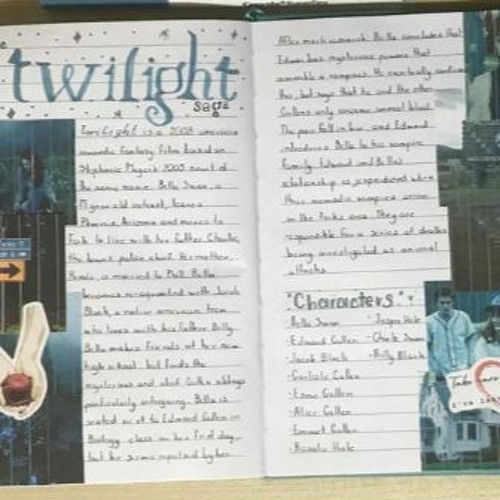 the
twilight
saga
Twilight is a 2008 american
romantic fantasy film based on
Stephanie Meyer's 2005 novel of
the same name. Bella Swan, a
17 year old outcast, leaves
Phoenix, Arizona and moves to
Fork to live with her father Charlie,
the town's police chief. Her mother,
Renée, is married to Phil. Bella
becomes re-aquainted with Jacob
Black, a native american teen
who lives with his father Billy.
Bella makes friends at her new
high school, but finds the
mysterious and aloof Cullen siblings
particularly intriguing. Bella is
seated next to Edward Cullen in
Biology class on her first day,
but he seems repulsed by her.
After much research, Bella concludes that
Edward has mysterious powers that
resemble a vampire. He eventually confirms
this, but says that he and the other
Cullens only consume animal blood.
The pair fall in love, and Edward
introduces Bella to his vampire
family. Edward and Bella's
relationship is jeopardised when
three nomadic vampires arrive
in the Forks area. They are
responsible for a series of deaths
being investigated as animal
attacks.
"Characters"
- Bella Swan - Jasper Hale
- Edward Cullen - Charlie Swan
- Jacob Black - Billy Black
- Carlisle Cullen
- Esme Cullen
- Alice Cullen
- Emmett Cullen
- Rosalie Hale